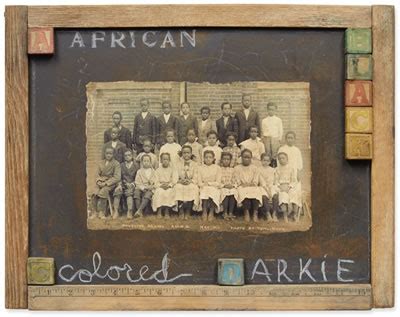 A AFRICAN
B
L
A
C
K
C colored D ARKIE